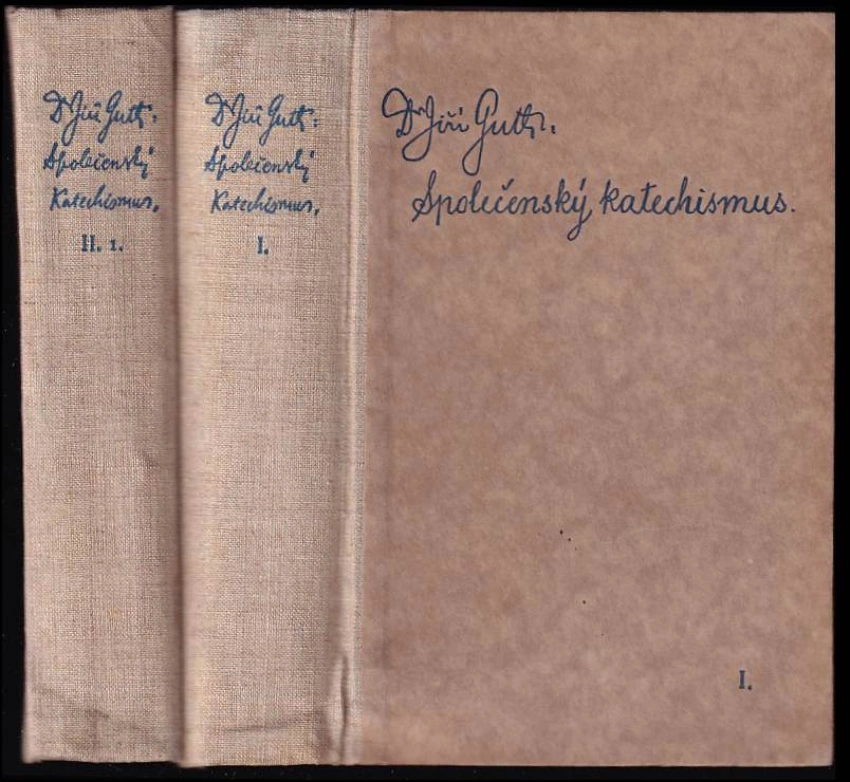 Dr Jiří Guth:
Společenský
Katechismus.
II. 1.
Dr Jiří Guth:
Společenský
Katechismus.
I.
Dr Jiří Guth:
Společenský katechismus.
I.